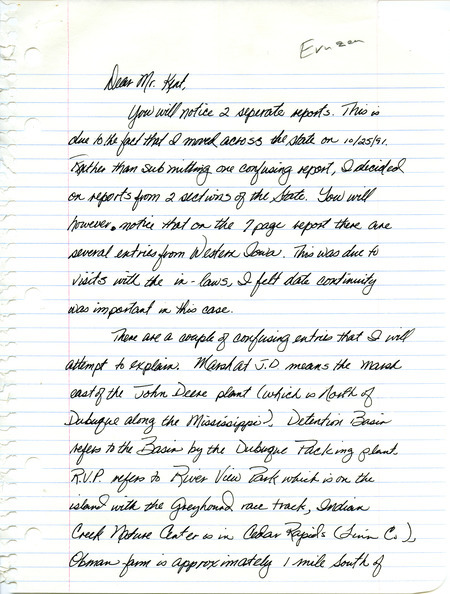 Eruzen
Dear Mr. Kent,
You will notice 2 seperate reports. This is
due to the fact that I moved across the state on 10/25/91.
Rather than submitting one confusing report, I decided
on reports from 2 sections of the State. You will
however, notice that on the 7 page report there are
several entries from Western Iowa. This was due to
visits with the in-laws, I felt date continuity
was important in this case.
There are a couple of confusing entries that I will
attempt to explain. Marsh at J.D means the marsh
east of the John Deere plant (which is North of
Dubuque along the Mississippi), Detention Basin
refers to the Basin by the Dubuque Packing plant.
R.V.P. refers to River View Park which is on the
island with the Greyhound race track, Indian
Creek Nature Center is in Cedar Rapids (Linn Co.),
Obman farm is approximately 1 mile south of